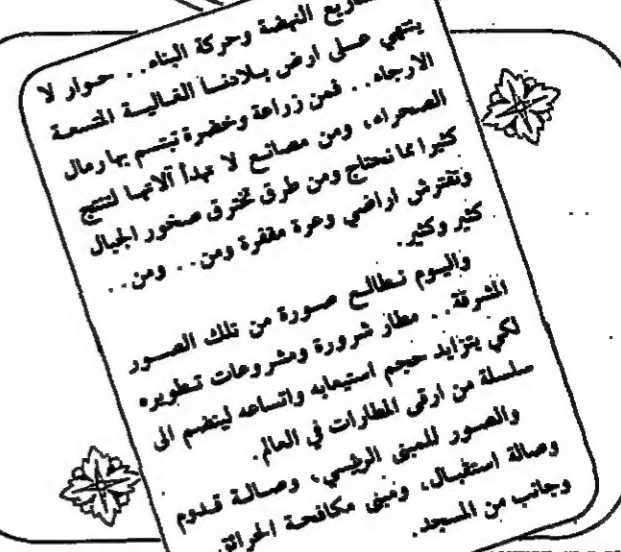 النهضة وحركة البناء.. حوار لا
ينتهي على ارض بلادنا الغالية المتسعة
الارجاء.. فمن زراعة وخضرة تبتسم بها رمال
الصحراء، ومن مصانع لا تهدأ آلاتها لتنتج
كثيرا مما نحتاج ومن طرق تخترق صخور الجبال
وتفترش اراضي وعرة مقفرة ومن.. ومن..
كثير وكثير.
واليوم نطالع صورة من تلك الصور
المشرقة.. مطار شرورة ومشروعات تطويره
لكي يتزايد حجم استيعابه واتساعه لينضم الى
سلسلة من ارقى المطارات في العالم.
والصور للمبنى الرئيسي، وصالة قدوم
وصالة استقبال، ومبنى مكافحة الحرائق
وجانب من المسجد.